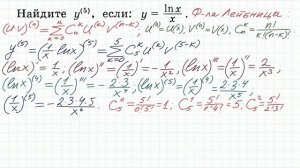 Найдите y⁽⁵⁾, если: y = ln x / x. Ф-ла Лейбница:
(UV)⁽ⁿ⁾ = Σₖ₌₀ⁿ Cₙᵏ U⁽ᵏ⁾ V⁽ⁿ⁻ᵏ⁾, U⁽⁰⁾ = U, V⁽⁰⁾ = V, Cₙᵏ = n! / k!(n-k)!
y⁽⁵⁾ = (1/x ln x)⁽⁵⁾ = Σₖ₌₀⁵ C₅ᵏ U⁽ᵏ⁾ V⁽⁵⁻ᵏ⁾
(ln x)' = 1/x, (ln x)'' = (1/x)' = -1/x², (ln x)''' = (1/x)'' = 2/x³,
(ln x)⁽⁴⁾ = (1/x)''' = -2·3/x⁴, (ln x)⁽⁵⁾ = (1/x)⁽⁴⁾ = 2·3·4/x⁵
(1/x)⁽⁵⁾ = -2·3·4·5/x⁶, C₅⁰ = 5!/0!5! = 1, C₅¹ = 5!/1!4! = 5, C₅² = 5!/2!3!